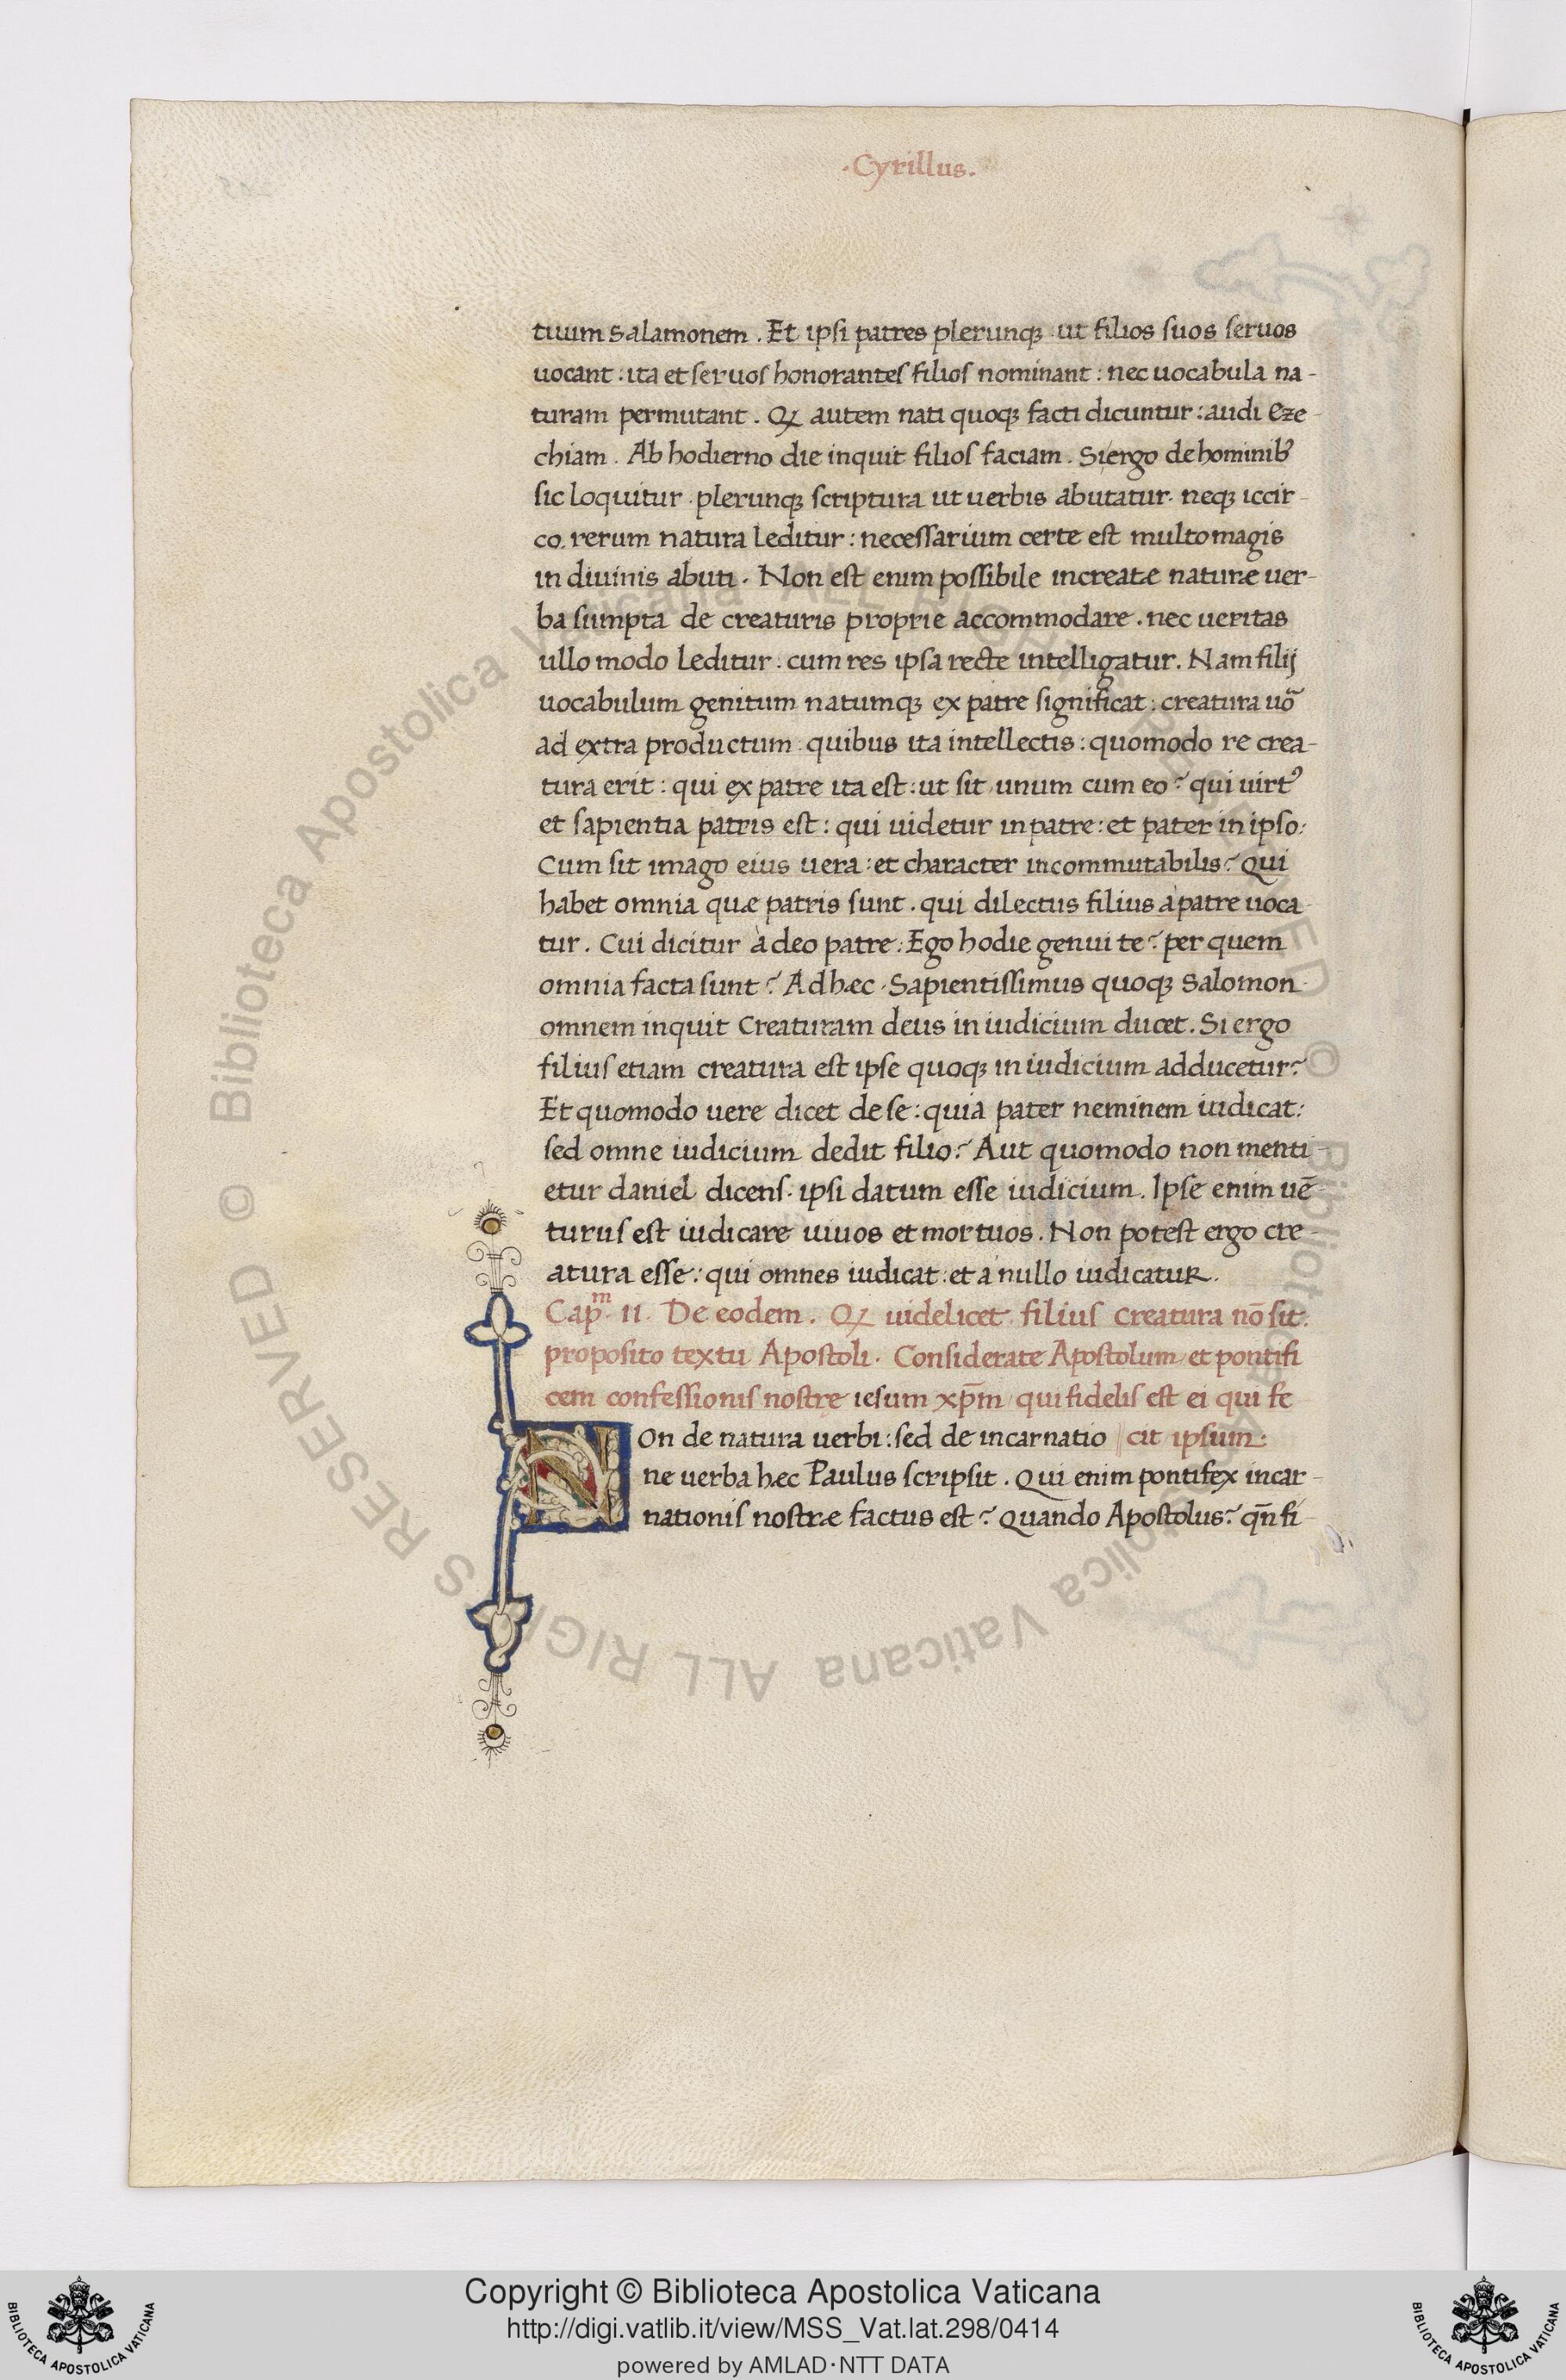 ·Cyrillus.
tuum Salamonem. Et ipsi patres plerunq; ut filios suos seruos
uocant: ita et seruos honorantes filios nominant: nec uocabula na-
turam permutant. Qꝫ autem nati quoq; facti dicuntur: audi Eze-
chiam. Ab hodierno die inquit filios faciam. Si ergo de hominibꝰ
sic loquitur plerunq; scriptura ut uerbis abutatur. neq; iccir-
co. rerum natura leditur: necessarium certe est multo magis
in diuinis abuti. Non est enim possibile increatæ naturæ uer-
ba sumpta de creaturis proprie accommodare. nec ueritas
ullo modo leditur: cum res ipsa recte intelligatur. Nam filij
uocabulum genitum natumq; ex patre significat: creatura uō
ad extra productum: quibus ita intellectis: quomodo re crea-
tura erit: qui ex patre ita est: ut sit unum cum eo? qui uirtꝰ
et sapientia patris est: qui uidetur in patre: et pater in ipso:
Cum sit imago eius uera: et character incommutabilis? Qui
habet omnia quæ patris sunt. qui dilectus filius a patre uoca-
tur. Cui dicitur a deo patre: Ego hodie genui te? per quem
omnia facta sunt? Ad hæc. Sapientissimus quoq; Salomon
omnem inquit Creaturam deus in iudicium ducet. Si ergo
filius etiam creatura est ipse quoq; in iudicium adducetur?
Et quomodo uere dicet de se: quia pater neminem iudicat:
sed omne iudicium dedit filio? Aut quomodo non menti-
etur daniel dicens. ipsi datum esse iudicium. Ipse enim uē-
turus est iudicare uiuos et mortuos. Non potest ergo cre-
atura esse: qui omnes iudicat: et a nullo iudicatur.
Capm. II. De eodem. Qꝫ uidelicet filius creatura nō sit:
proposito textu Apostoli. Considerate Apostolum et pontifi
cem confessionis nostrę iesum xp̄m qui fidelis est ei qui fe
Non de natura uerbi: sed de incarnatio cit ipsum:
ne uerba hæc Paulus scripsit. Qui enim pontifex incar-
nationis nostræ factus est? Quando Apostolus? qn̄ fi-
© Biblioteca Apostolica Vaticana ALL RIGHTS RESERVED © Biblioteca Apostolica Vaticana ALL RIGHTS RESERVED
Copyright © Biblioteca Apostolica Vaticana
http://digi.vatlib.it/view/MSS_Vat.lat.298/0414
powered by AMLAD·NTT DATA
BIBLIOTECA APOSTOLICA VATICANA
BIBLIOTECA APOSTOLICA VATICANA